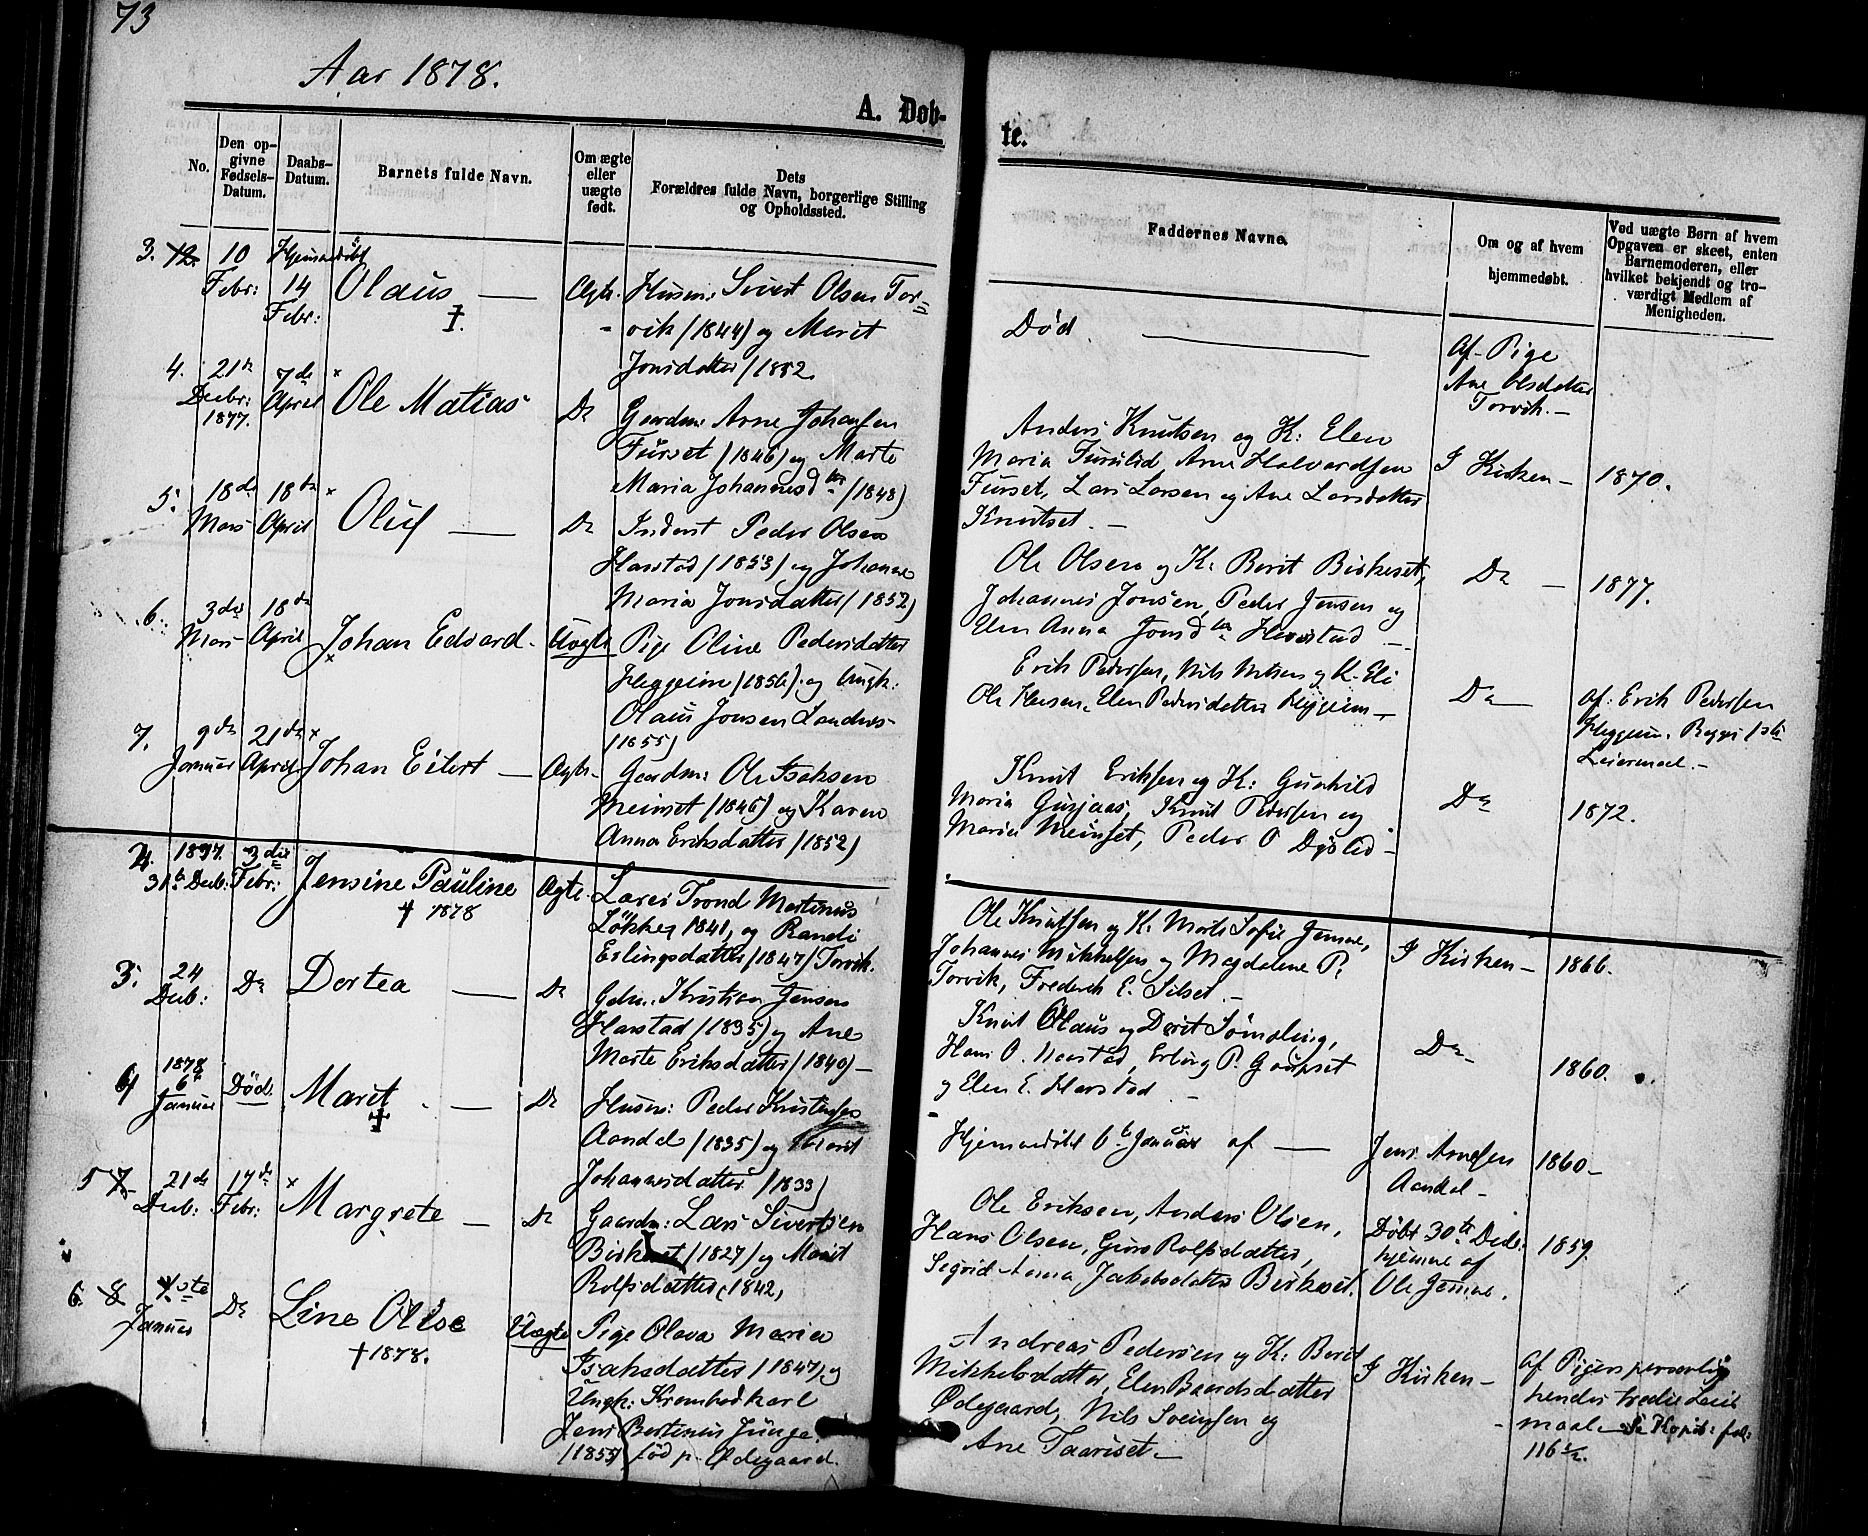 73
Aar 1878.
A. Døb-
te.
No.
Den op-
givne
Fødsels-
Datum.
Daabs-
Datum.
Barnets fulde Navn.
Om ægte
eller
uægte
født.
Dets
Forældres fulde Navn, borgerlige Stilling
og Opholdssted.
Faddernes Navne.
Om og af hvem
hjemmedøbt.
Ved uægte Børn af hvem
Opgaven er skeet, enten
Barnemoderen, eller
hvilket bekjendt og tro-
værdigt Medlem af
Menigheden.
3. 12. 10
Febr:
Hjemmedøbt
14
Febr:
Olaus
Ægte.
Husm: Sivert Olsen Tor-
vik (1844) og Marit
Jonsdatter (1852
Død
Af Pige
Ane Olsdatter
Torvik.
4. 21de
Decbr:
1877.
7de
April
Ole Matias
Do
Gaardm: Arne Johansen
Furset (1846) og Marte
Maria Johannesdtr (1848)
Anders Knutsen og K: Elen
Maria Furulid, Arne Halvardsen
Furset, Lars Larsen og Ane Larsdatter
Knutset.
I Kirken
1870.
5. 18de
Mars
18de
April
Oluf
Do
Inderst Peder Olsen
Harstad (1853) og Johanne
Maria Jonsdatter (1852)
Ole Olsen og K: Berit Birkeset,
Johannes Jonsen, Peder Jensen og
Elen Anna Jonsdtr Harstad
Do
1877.
6. 3die
Mars
18de
April
Johan Edvard
Uægte
Pige Oline Pedersdatter
Heggeim (1856) og Ungk:
Olaus Jonsen
(1855)
Erik Pedersen, Nils Nilsen og K. Eli
Ole Hansen, Elen Pedersdatter Heggeim
Do
af: Erik Pedersen
Heggeim. Begges 1ste
Leiermaal.
7. 9de
Januar
21de
April
Johan Eilert
Ægte
Gaardm: Ole Isaksen
Meinset (1846) og Karen
Anna Eriksdatter (1852)
Knut Eriksen og K: Gunhild
Maria Gusjaas, Knut Pedersen og
Maria Meinset, Peder O Dyrlid
Do
1872.
2. 1877.
31te Decb:
3die
Febr:
Jensine Pauline
† 1878
Ægte
Lærer Trond Martinus
Løkke, 1841, og Randi
Erlingsdatter (1847) Torvik.
Ole Knutsen og K: Marte Sofie Jemne,
Johannes Mikkelsen og Magdalene P.
Torvik, Frederik E. Silset
I Kirken
1866.
3. 24
Decb:
Do
Dortea
Do
Gdm. Kristian Jensen
Harstad (1835) og Ane
Marte Eriksdatter (1840)
Knut Olaus og Dorit Sømoling,
Hans O. Harstad, Erling P. Gaupset
og Elen E. Harstad
Do
1860.
4 1878
6te
Januar
Død.
Marit
Do
Husm: Peder Kristensen
Aandal (1835) og Marit
Johannesdatter (1833)
Hjemmedøbt 6te Januar af
Jens Arnesen
Aandal
1860
5 7. 21de
Decb:
17de
Febr:
Margrete
Do
Gaardm: Lars Sivertsen
Birkeset (1827) og Marit
Rolfsdatter (1842,
Ole Eriksen, Anders Olsen,
Hans Olsen, Guro Rolfsdatter,
Segrid Anna Jakobsdatter Birkeset.
Døbt 30te Decb:
hjemme af
Ole Jemne.
1859.
6. 8 1ste
Januar
Do
Line Olise
† 1878.
Uægte
Pige Olava Maria
Isaksdatter (1847) og
Ungk: Krambodkarl
Jens Bertinus Junge
(1855) født p. Ødegaard.
Andreas Pedersen og K: Berit
Mikkelsdatter, Elen Baardsdatter
Ødegaard, Nils Sveinsen og
Ane Taariset
I Kirken
Af Pigen personlig
hendes tredie Leier
maal. Se Kopib: fol:
116 1/2.